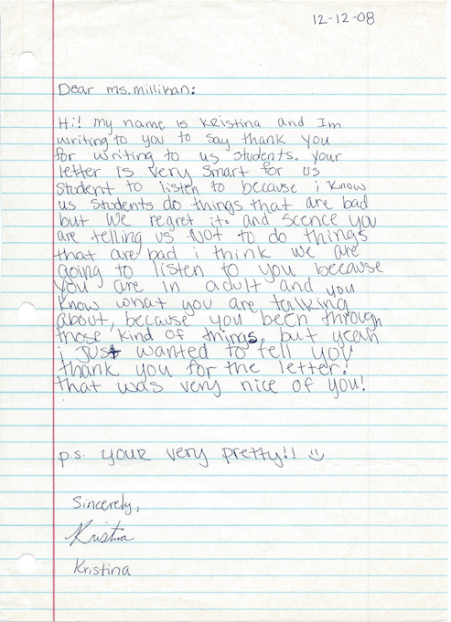 12-12-08
Dear ms. millikan:
Hi! my name is Kristina and Im
writing to you to say thank you
for writing to us students. your
letter is very smart for us
student to listen to because i know
us students do things that are bad
but we regret it. and scence you
are telling us Not to do things
that are bad i think we are
going to listen to you because
you are in adult and you
know what you are talking
about, because you been through
those kind of things, but yeah
i just wanted to tell you
thank you for the letter!
that was very nice of you!
p.s. your very pretty!! ☺
Sincerely,
Kristina
Kristina